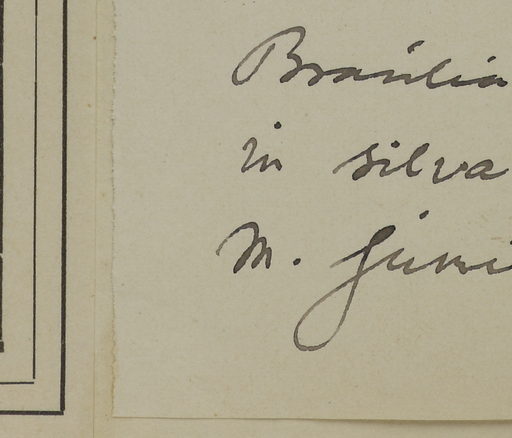 Brasilia
in silva
M. Juni